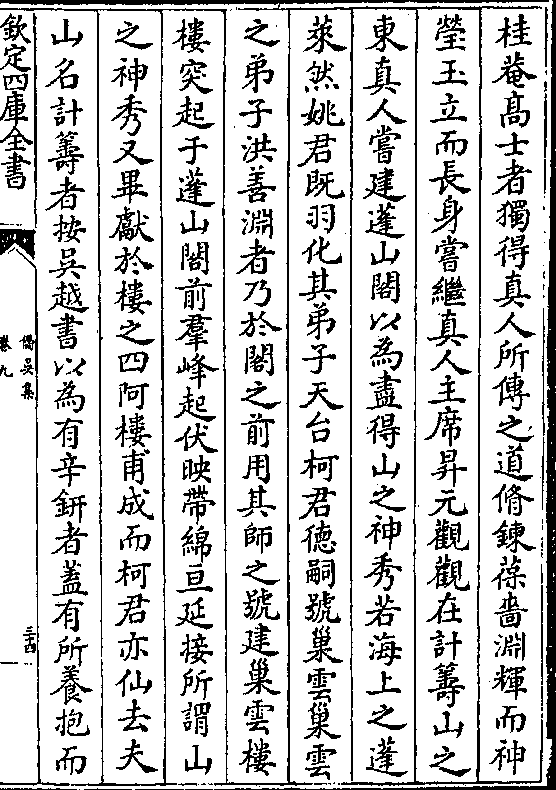 桂菴髙士者獨得真人所傳之道脩鍊葆嗇淵輝而神
瑩玉立而長身嘗繼真人主席昇元觀觀在計籌山之
東真人嘗建蓬山閣以為盡得山之神秀若海上之蓬
萊然姚君既羽化其弟子天台柯君德嗣號巢雲巢雲
之弟子洪善淵者乃於閣之前用其師之號建巢雲樓
樓突起于蓬山閣前羣峰起伏映帶綿亘延接所謂山
之神秀又畢獻於樓之四阿樓甫成而柯君亦仙去夫
山名計籌者按吳越書以為有辛鈃者蓋有所養抱而
欽定四庫全書
僑吳集
卷九
三十四